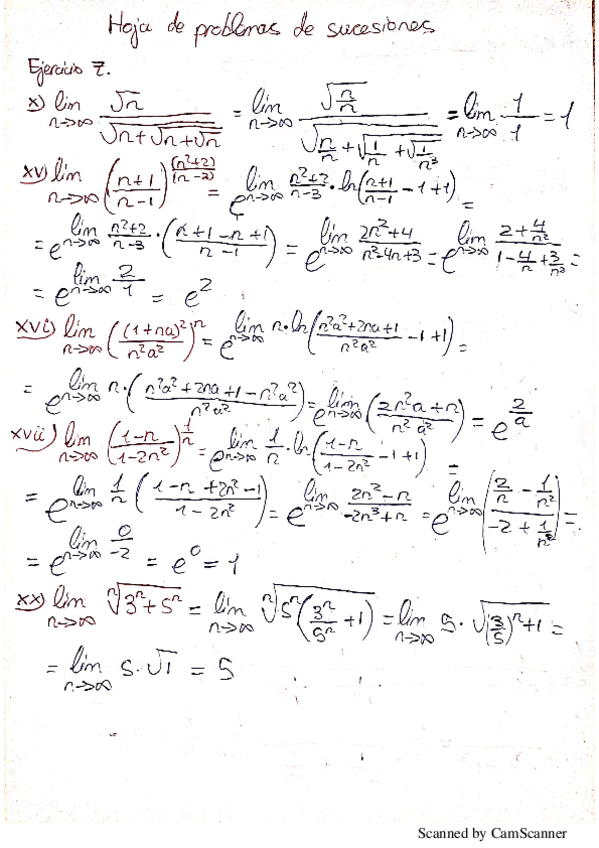 Hoja de problemas de sucesiones
Ejercicio 7.
x) lim n→∞ √n / √(n+√(n+√n)) = lim n→∞ √(n/n) / √(n/n + √(1/n + √(1/n³))) = lim n→∞ 1/1 = 1
xv) lim n→∞ ((n+1)/(n-1))^((n²+2)/(n-3)) = e^(lim n→∞ (n²+2)/(n-3) · ln((n+1)/(n-1) - 1 + 1)) =
= e^(lim n→∞ (n²+2)/(n-3) · ((n+1-n+1)/(n-1))) = e^(lim n→∞ (2n²+4)/(n²-4n+3)) = e^(lim n→∞ (2+4/n²)/(1-4/n+3/n²)) =
= e^(lim n→∞ 2/1) = e²
xvi) lim n→∞ ((1+na)²/(n²a²))^n = e^(lim n→∞ n·ln((n²a²+2na+1)/(n²a²) - 1 + 1)) =
= e^(lim n→∞ n·((n²a²+2na+1-n²a²)/(n²a²))) = e^(lim n→∞ ((2n²a+n)/(n²a²))) = e^(2/a)
xvii) lim n→∞ ((1-n)/(1-2n²))^(1/n) = e^(lim n→∞ 1/n · ln((1-n)/(1-2n²) - 1 + 1)) =
= e^(lim n→∞ 1/n ((1-n+2n²-1)/(1-2n²))) = e^(lim n→∞ (2n²-n)/(-2n³+n)) = e^(lim n→∞ ((2/n - 1/n²)/(-2+1/n²))) =
= e^(lim n→∞ 0/-2) = e⁰ = 1
xx) lim n→∞ ⁿ√(3ⁿ+5ⁿ) = lim n→∞ ⁿ√(5ⁿ(3ⁿ/5ⁿ + 1)) = lim n→∞ 5·√((3/5)ⁿ+1) =
= lim n→∞ 5·√1 = 5
Scanned by CamScanner